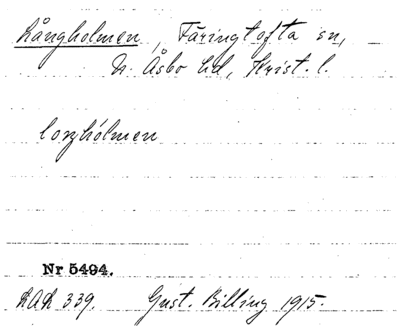 Långholmen, Färingtofta sn,
N. Åsbo hd, Krist. l.
Nr 5494.
LAL 339. Gust. Billing 1915.